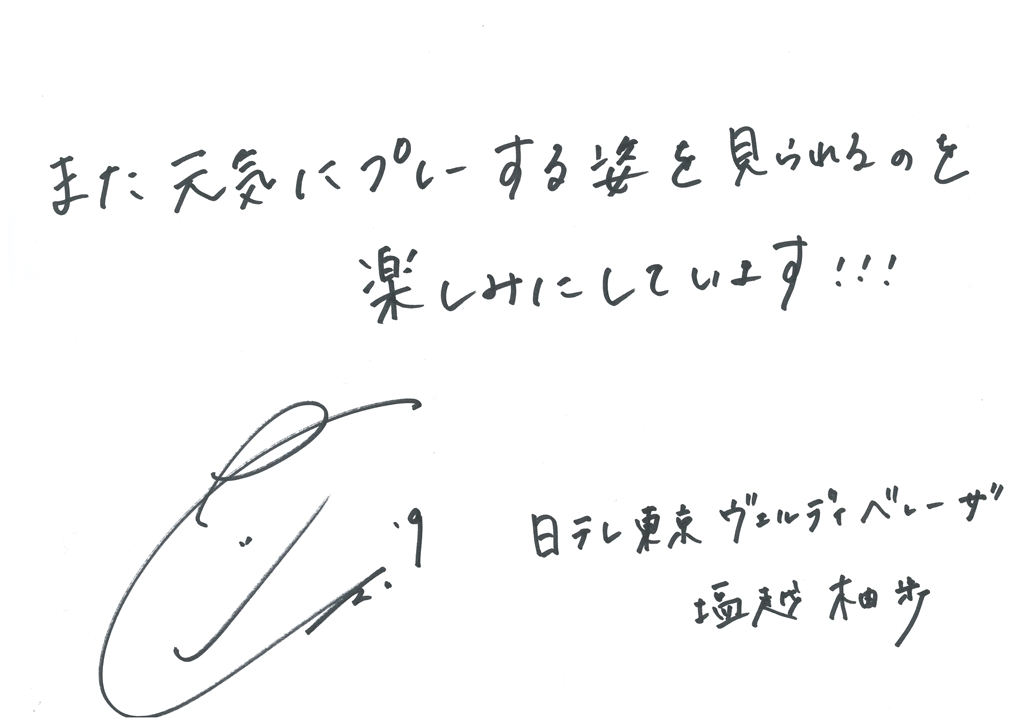 また元気にプレーする姿を見られるのを
楽しみにしています!!!
日テレ東京ヴェルディベレーザ
塩越柚歩
.9